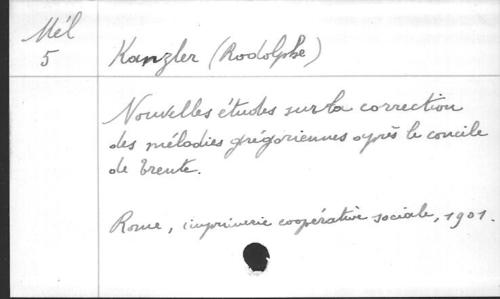 Mél
5
Kanzler (Rodolphe)
Nouvelles études sur la correction
des mélodies grégoriennes après le concile
de Trente.
Rome, imprimerie coopérative sociale, 1901.